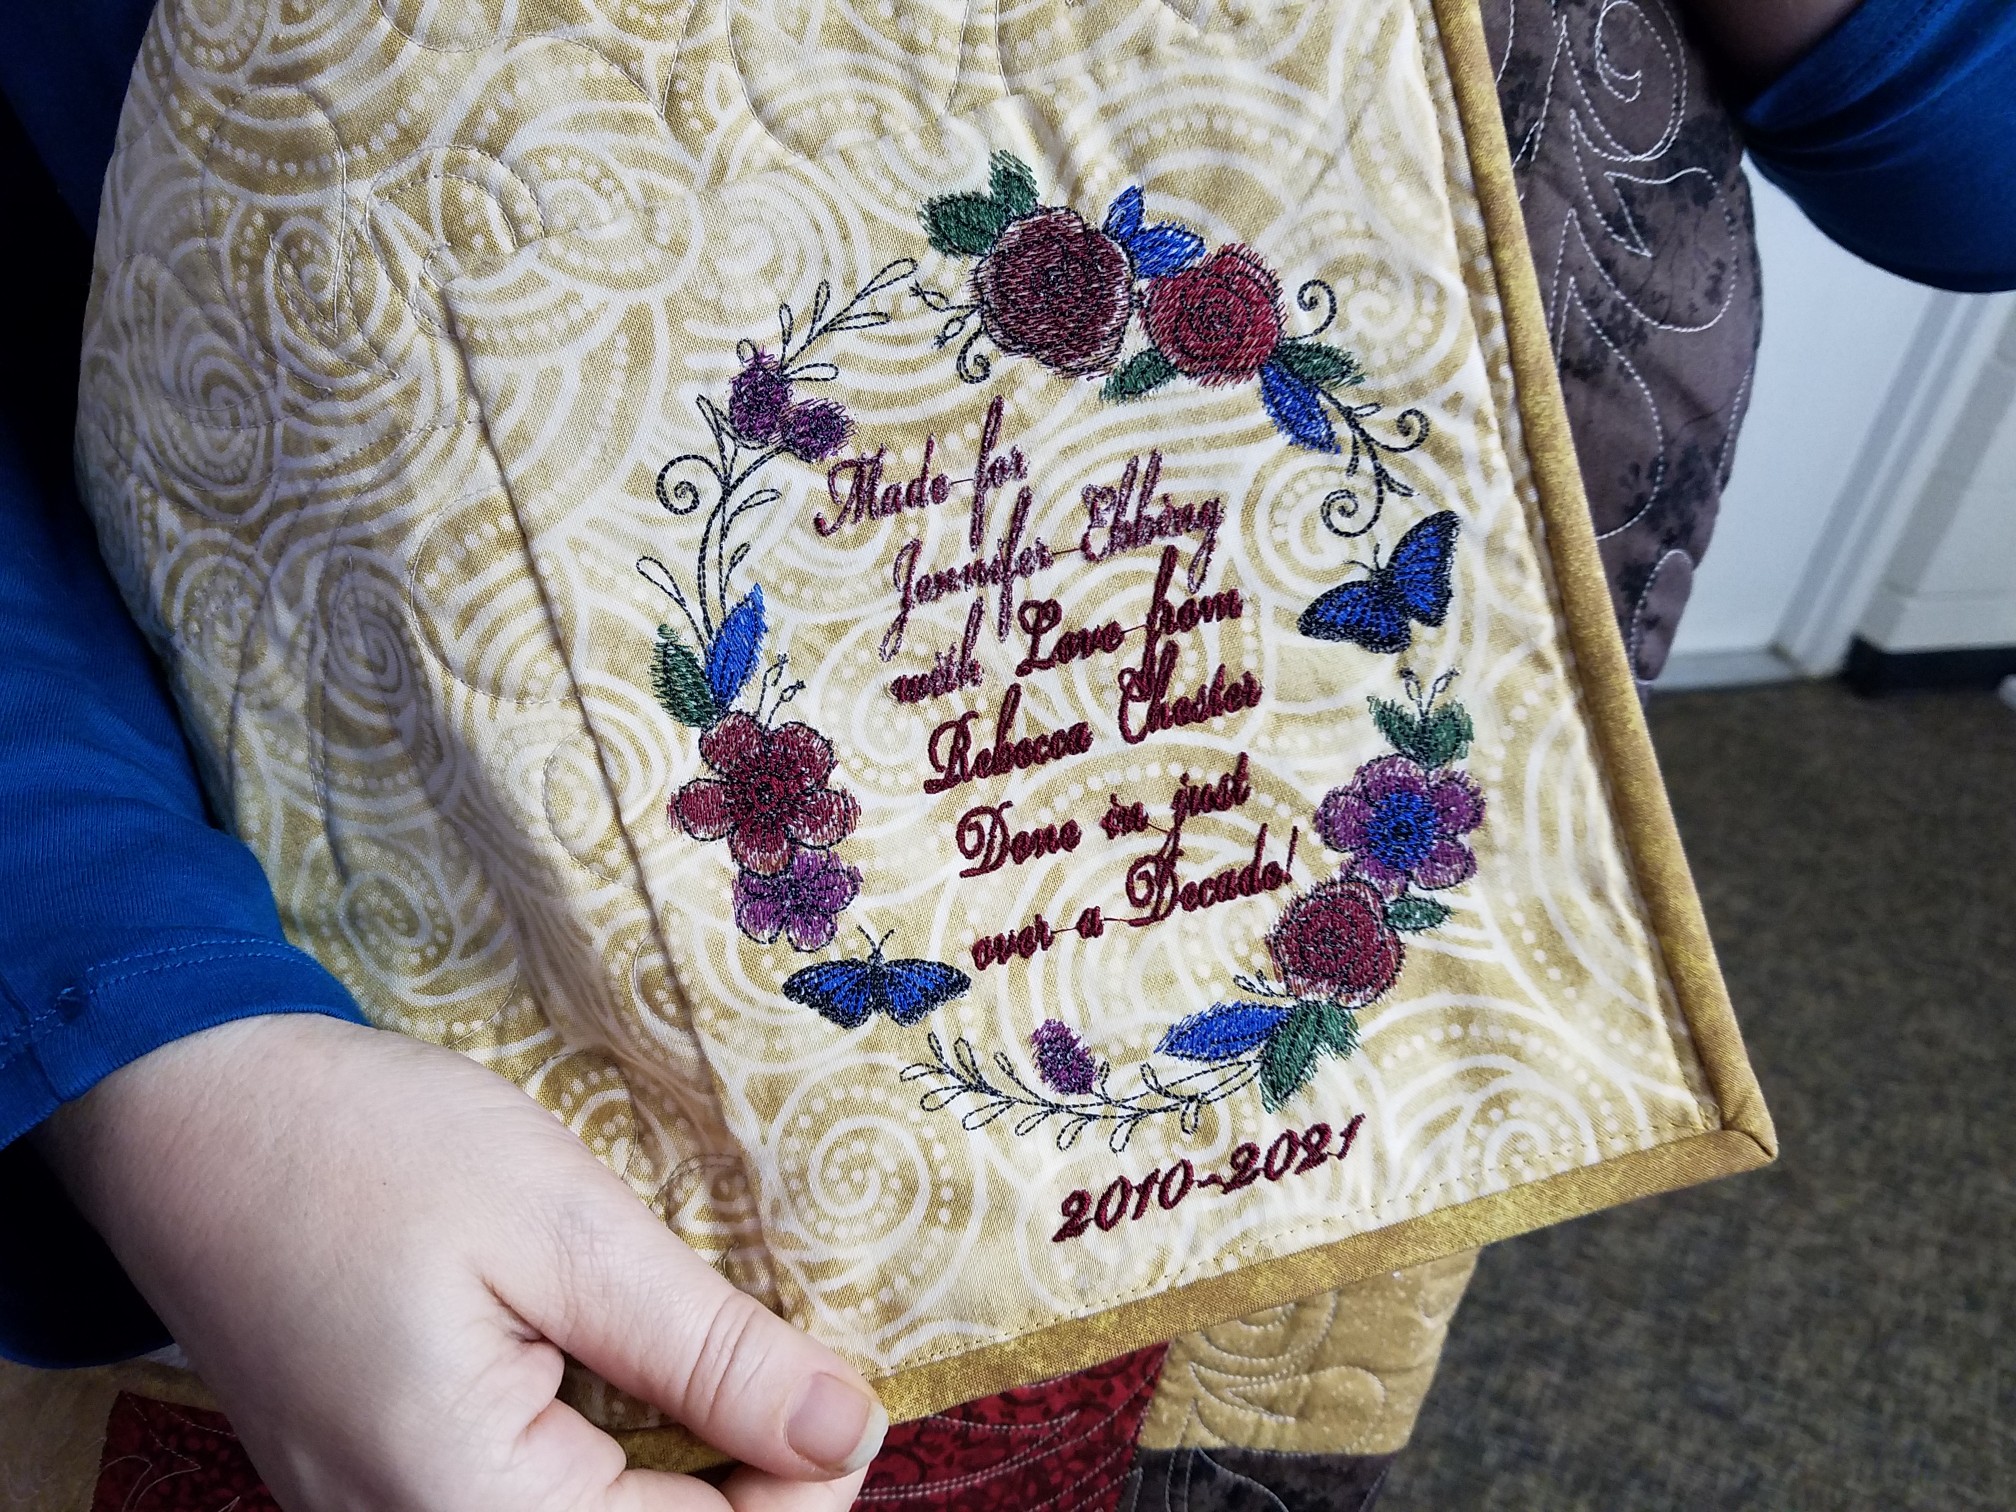 Made for
Jennifer Ebbing
with Love from
Rebecca Chester
Done in just
over a Decade!
2010-2021